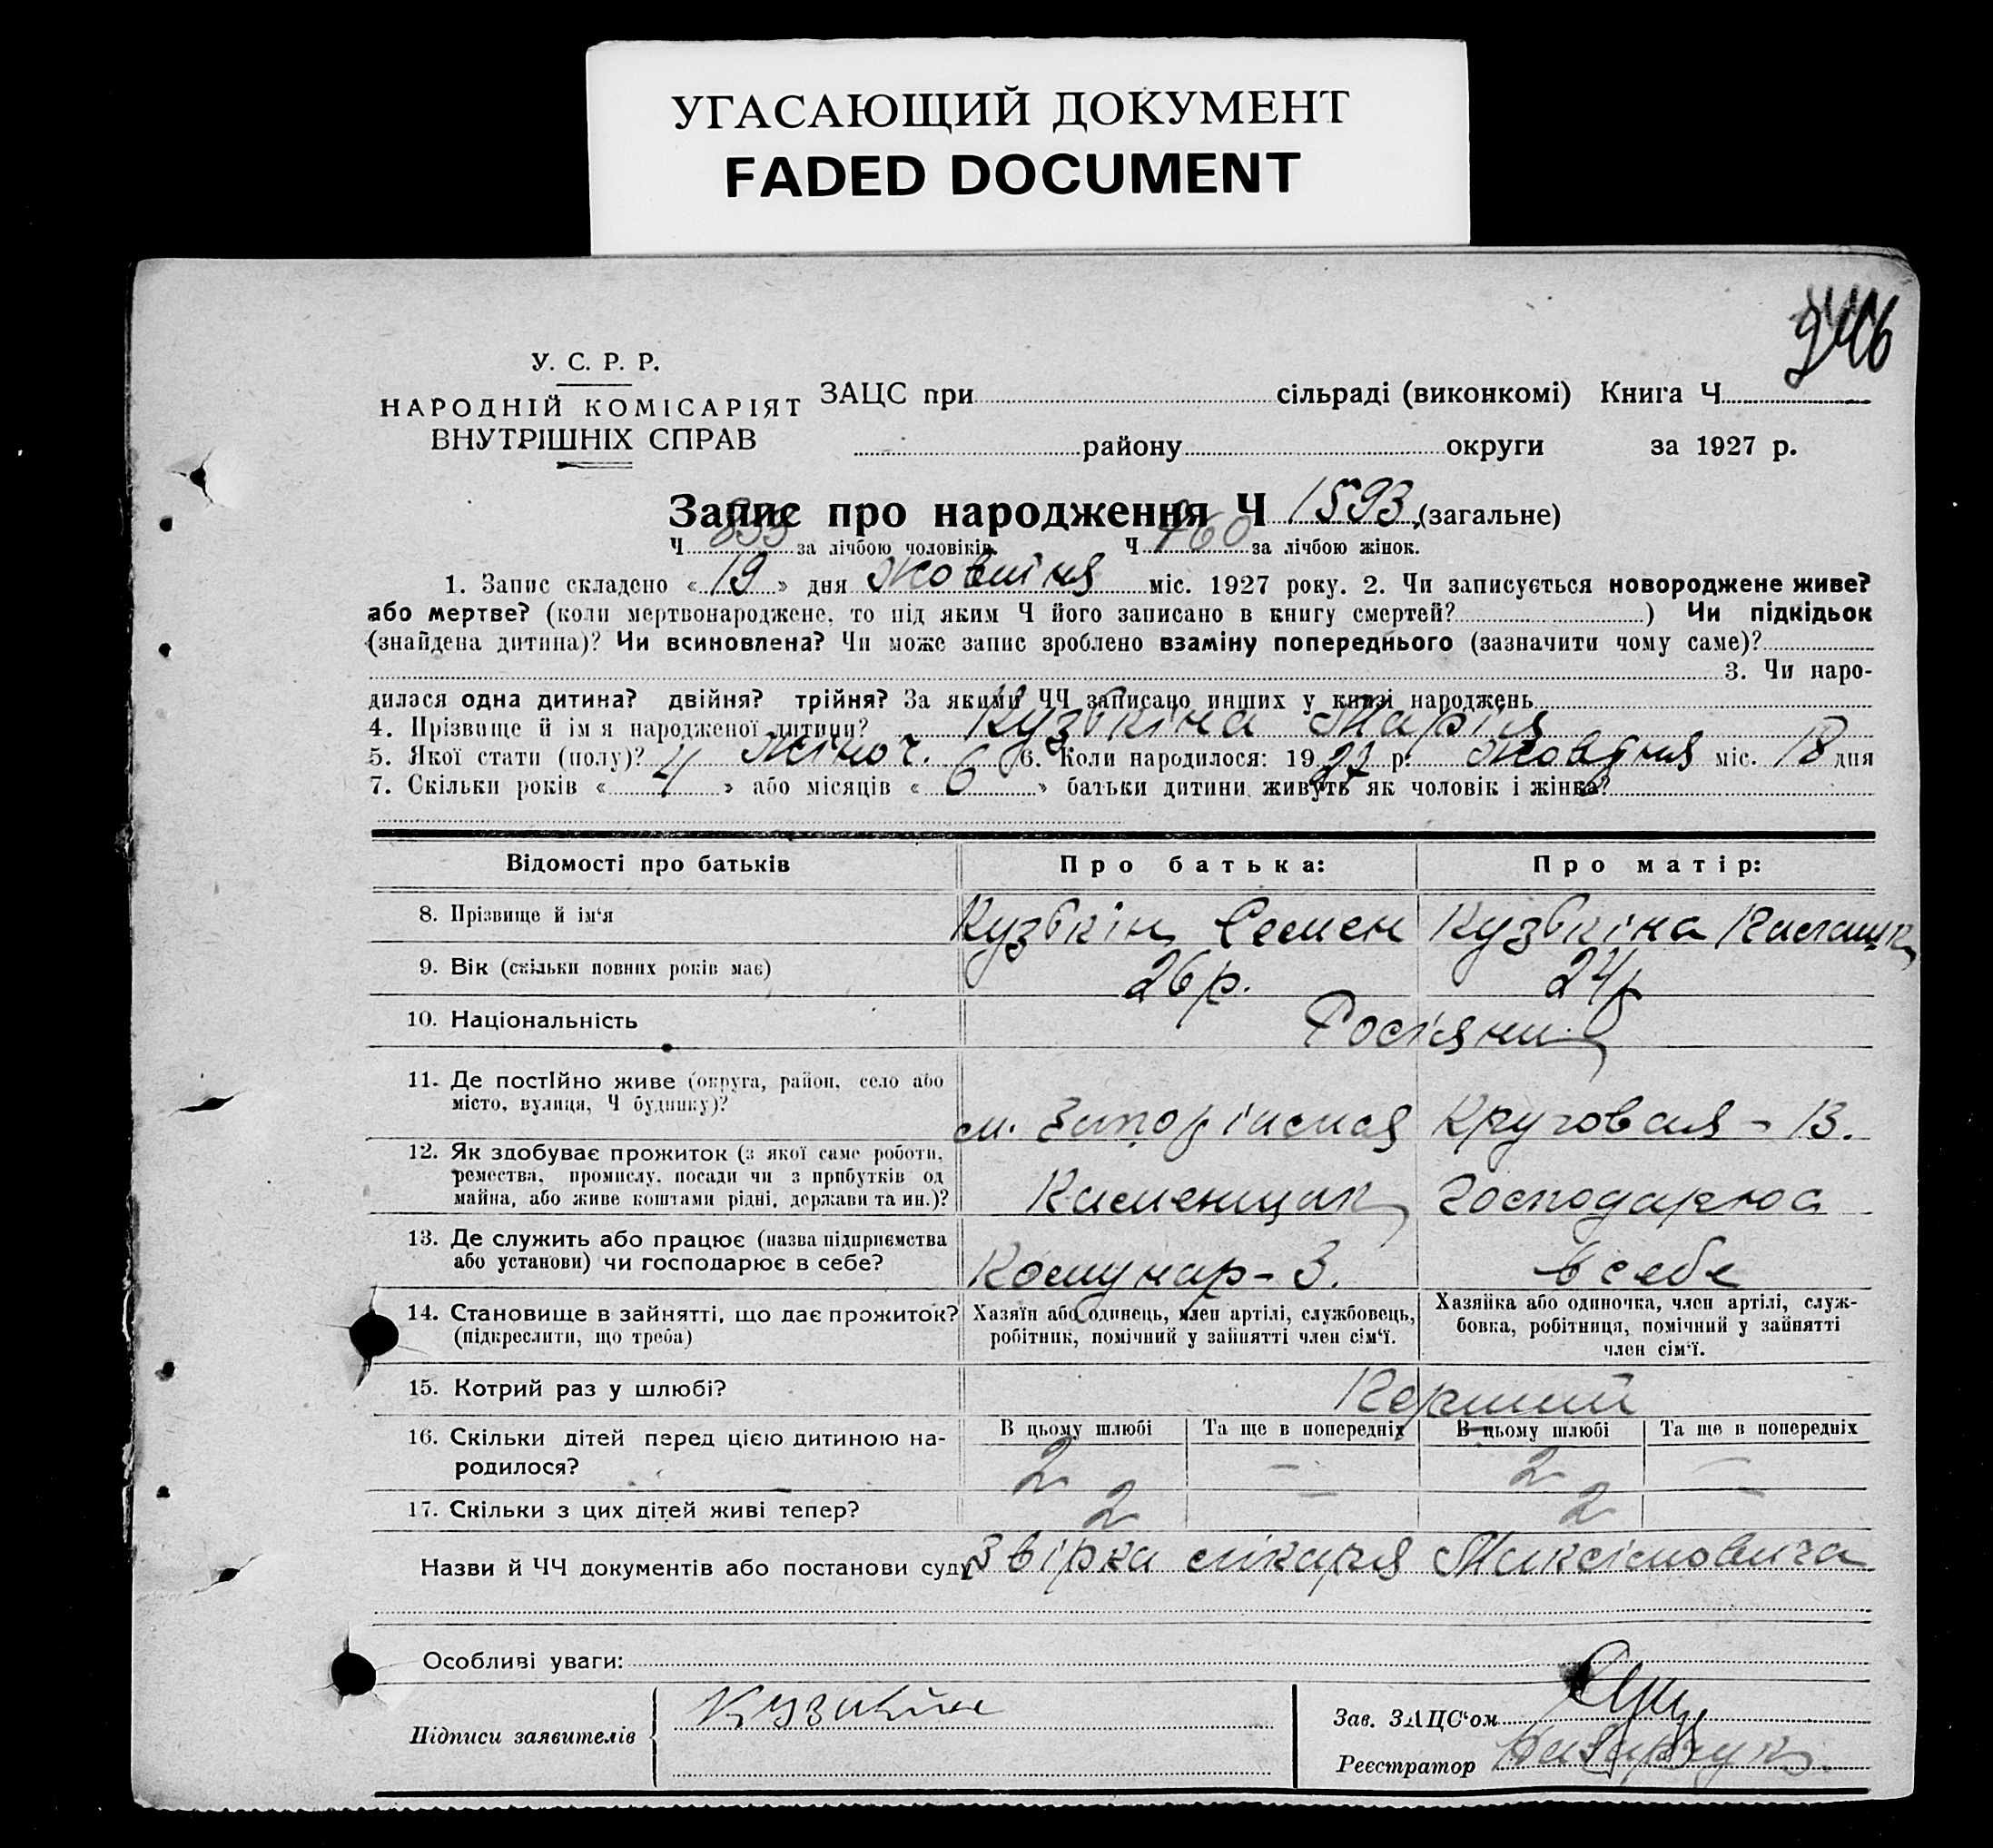 УГАСАЮЩИЙ ДОКУМЕНТ
FADED DOCUMENT
У. С. Р. Р.
НАРОДНІЙ КОМІСАРІЯТ
ВНУТРІШНІХ СПРАВ
ЗАЦС при сільраді (виконкомі) Книга Ч
району округи за 1927 р.
Запис про народження Ч 1593 (загальне)
Ч 833 за лічбою чоловіків. Ч 760 за лічбою жінок.
1. Запис складено « 19 » дня Жовтня міс. 1927 року. 2. Чи записується новороджене живе?
або мертве? (коли мертвонароджене, то під яким Ч його записано в книгу смертей? ) Чи підкідьок
(знайдена дитина)? Чи всиновлена? Чи може запис зроблено взаміну попереднього (зазначити чому саме)?
3. Чи наро-
дилася одна дитина? двійня? трійня? За якими ЧЧ записано инших у книзі народжень
4. Прізвище й ім я народженої дитини? Кузькіна Марія
5. Якої стати (полу)? Жіноч. 6. Коли народилося: 1927 р. Жовтня міс. 18 дня
7. Скільки років « 4 » або місяців « 6 » батьки дитини живуть як чоловік і жінка?
Відомості про батьків Про батька: Про матір:
8. Прізвище й ім‘я Кузькін Семен Кузькіна
9. Вік (скільки повних років має) 26 р. 24 р
10. Національність Росіяни
11. Де постійно живе (округа, район, село або
місто, вулиця, Ч будинку)?
м. Запоріжжя Круговая - 13.
12. Як здобуває прожиток (з якої саме роботи,
ремества, промислу, посади чи з прибутків од
майна, або живе коштами рідні, держави та ин.)?
Каменщик Господарює
13. Де служить або працює (назва підприємства
або установи) чи господарює в себе?
Комунар - 3. в себе
14. Становище в зайнятті, що дає прожиток?
(підкреслити, що треба)
Хазяїн або одинець, член артілі, службовець,
робітник, помічний у зайнятті член сім‘ї.
Хазяйка або одиночка, член артілі, служ-
бовка, робітниця, помічний у зайнятті
член сім‘ї.
15. Котрий раз у шлюбі? Перший
16. Скільки дітей перед цією дитиною на-
родилося?
В цьому шлюбі Та ще в попередніх В цьому шлюбі Та ще в попередніх
2 — 2 —
17. Скільки з цих дітей живі тепер? 2 — 2 —
Назви й ЧЧ документів або постанови суду Звірка лікаря Максімовича
Особливі уваги:
Підписи заявителів Кузькін
Зав. ЗАЦС‘ом
Реєстратор